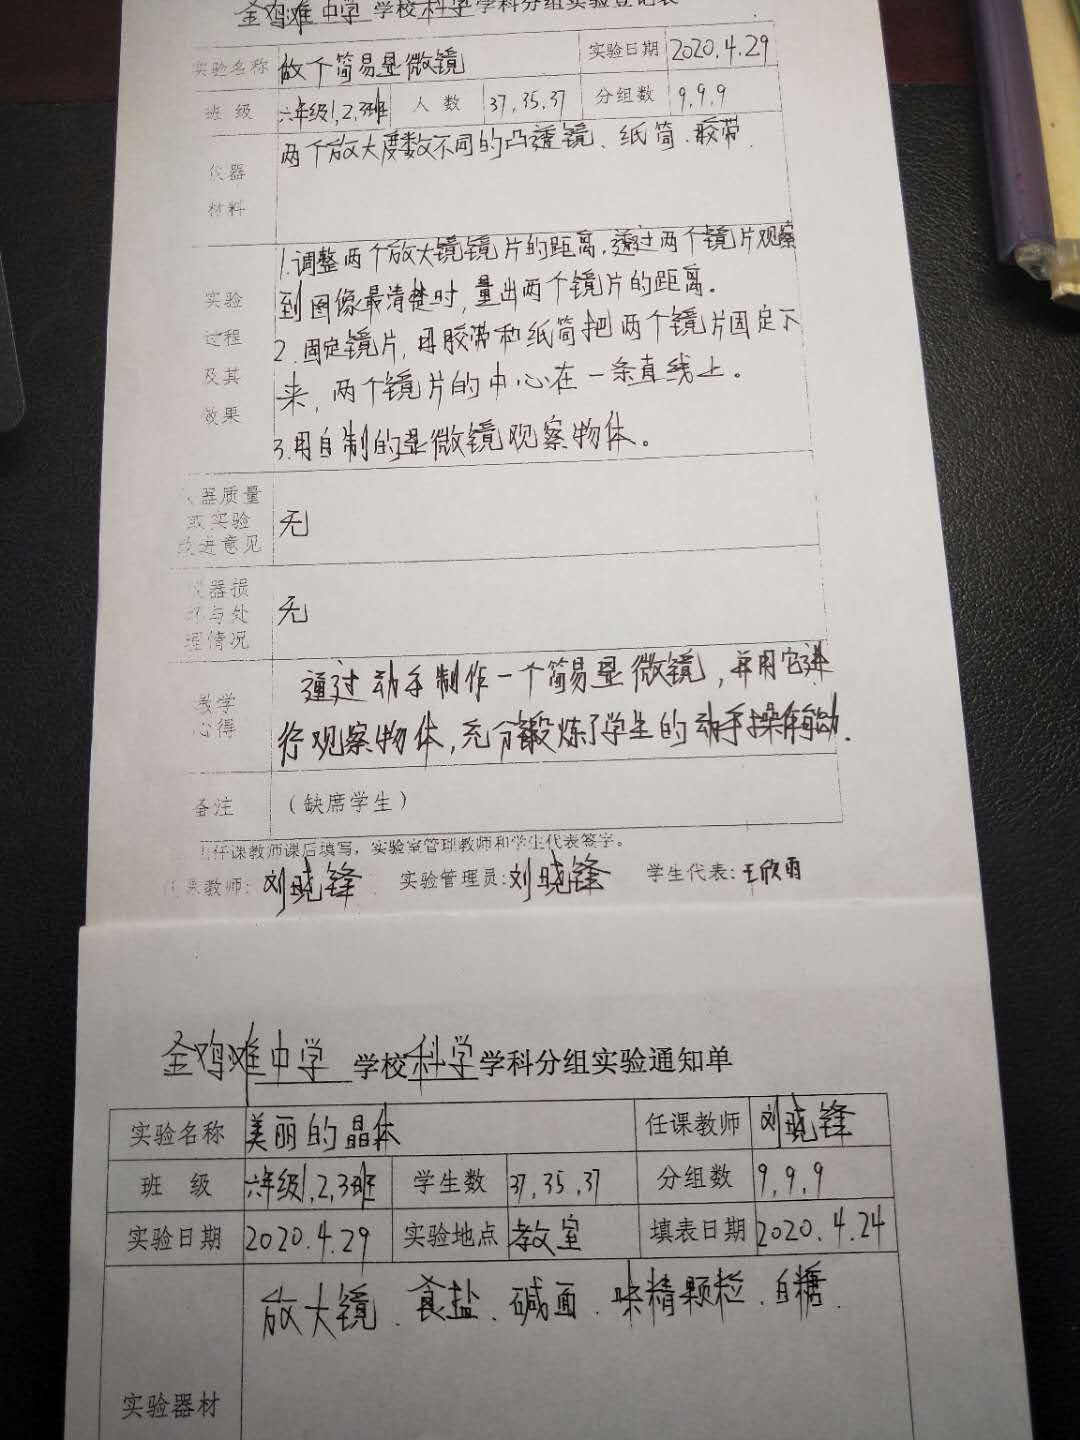 金鸡滩中学 学校科学学科分组实验登记表
实验名称 做个简易显微镜 实验日期 2020.4.29
班 级 六年级1,2,3班 人 数 37,35,37 分组数 9,9,9
仪器
材料
两个放大度数不同的凸透镜、纸筒、胶带.
实验
过程
及其
效果
1.调整两个放大镜镜片的距离,透过两个镜片观察
到图像最清楚时,量出两个镜片的距离.
2.固定镜片,用胶带和纸筒把两个镜片固定下
来,两个镜片的中心在一条直线上。
3.用自制的显微镜观察物体。
仪器质量
或实验
改进意见
无
仪器损
坏与处
理情况
无
教学
心得
通过动手制作一个简易显微镜,并用它进
行观察物体,充分锻炼了学生的动手操作能力.
备注 （缺席学生）
任课教师课后填写，实验室管理教师和学生代表签字。
任课教师: 刘晓锋 实验管理员: 刘晓锋 学生代表: 王欣雨
金鸡滩中学 学校科学学科分组实验通知单
实验名称 美丽的晶体 任课教师 刘晓锋
班 级 六年级1,2,3班 学生数 37,35,37 分组数 9,9,9
实验日期 2020.4.29 实验地点 教室 填表日期 2020.4.24
实验器材
放大镜、食盐、碱面、味精颗粒、白糖.